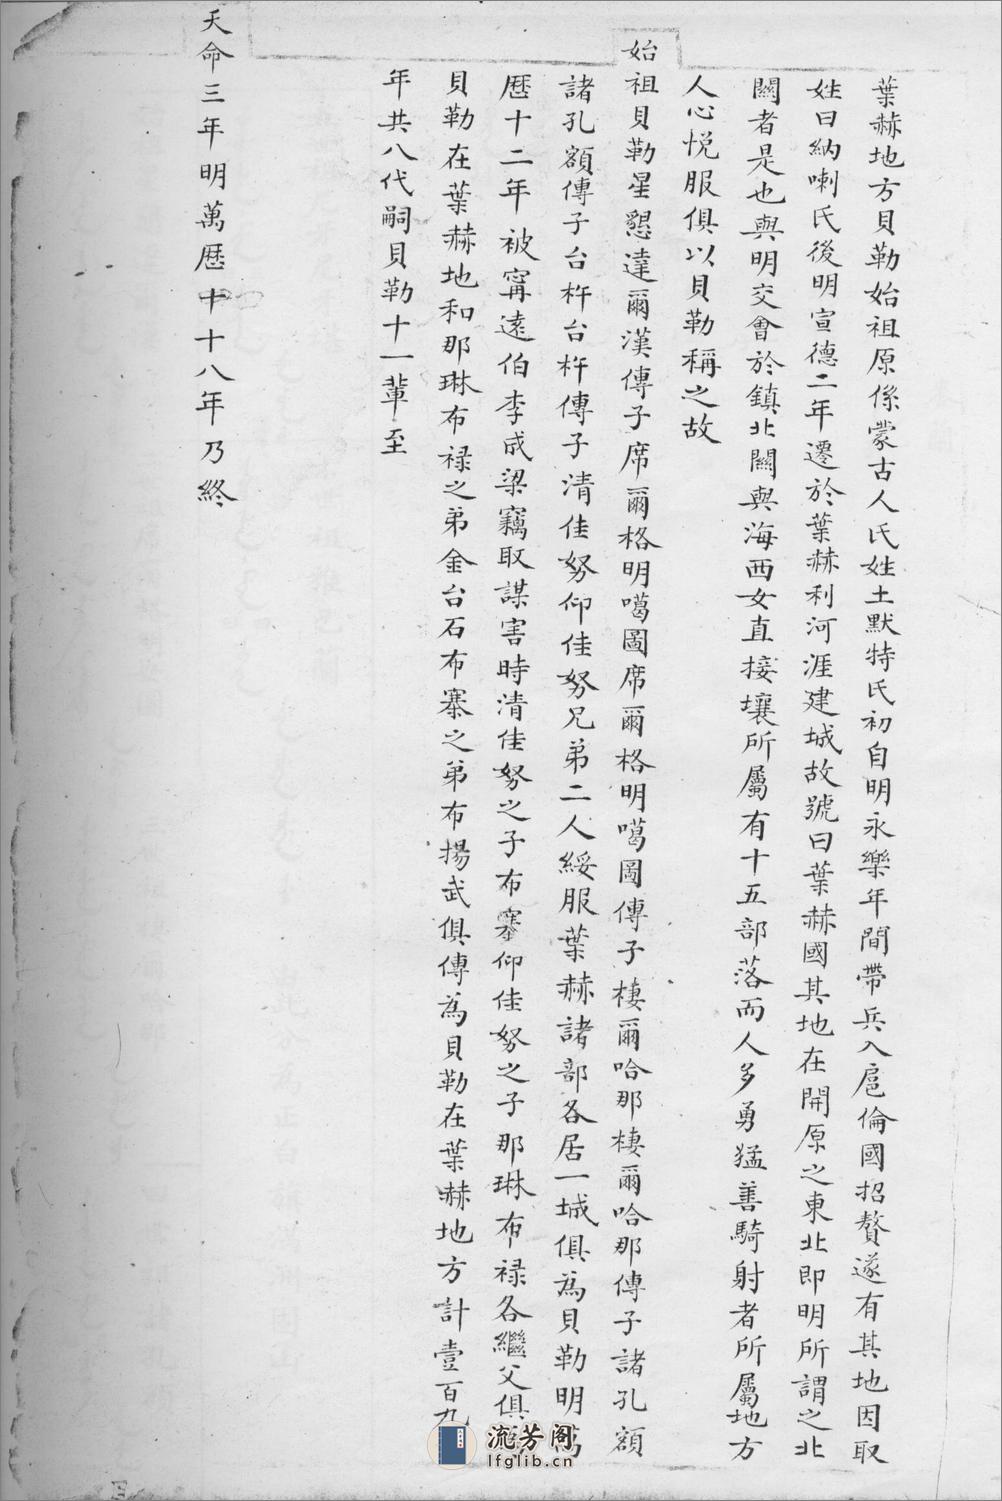 葉赫地方貝勒始祖原係蒙古人氏姓土默特氏初自明永樂年間帶兵入扈倫國招贅遂有其地因取
姓曰納喇氏後明宣德二年遷於葉赫利河涯建城故號曰葉赫國其地在開原之東北即明所謂之北
關者是也與明交會於鎮北關與海西女直接壤所屬有十五部落而人多勇猛善騎射者所屬地方
人心悅服俱以貝勒稱之故
始祖貝勒星懇達爾漢傳子席爾格明噶圖席爾格明噶圖傳子棲爾哈那棲爾哈那傳子諸孔額
諸孔額傳子台杵台杵傳子清佳努仰佳努兄弟二人綏服葉赫諸部各居一城俱為貝勒明萬
歷十二年被甯遠伯李成梁竊取謀害時清佳努之子布寨仰佳努之子那琳布祿各繼父俱
貝勒在葉赫地和那琳布祿之弟金台石布寨之弟布揚武俱傳為貝勒在葉赫地方計壹百九
年共八代嗣貝勒十一輩至
天命三年明萬歷十八年乃終
流芳阁
lfglib.cn